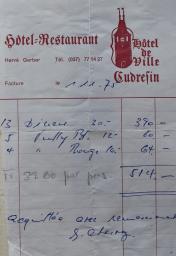 Hôtel-Restaurant
Hôtel
de
Ville
Cudrefin
Hervé Gerber Tél. (037) 77 14 27
Facture le 1.11.75
13 Diners 30.- 390 -
5 Pully Bl. 12- 60 -
4 " Rouge 16.- 64 -
39.60 par pers. 514 -
acquittée avec